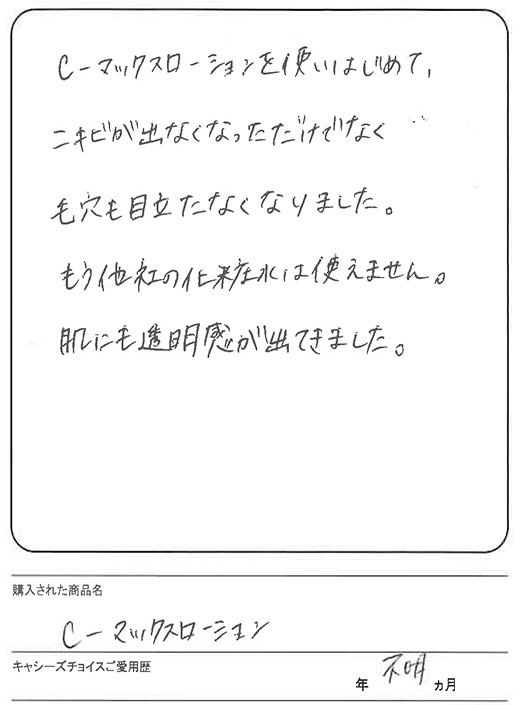 C-マックスローションを使いはじめて、
ニキビが出なくなっただけでなく
毛穴も目立たなくなりました。
もう他社の化粧水は使えません。
肌にも透明感が出てきました。
購入された商品名
C-マックスローション
キャシーズチョイスご愛用歴
年 不明 ヵ月